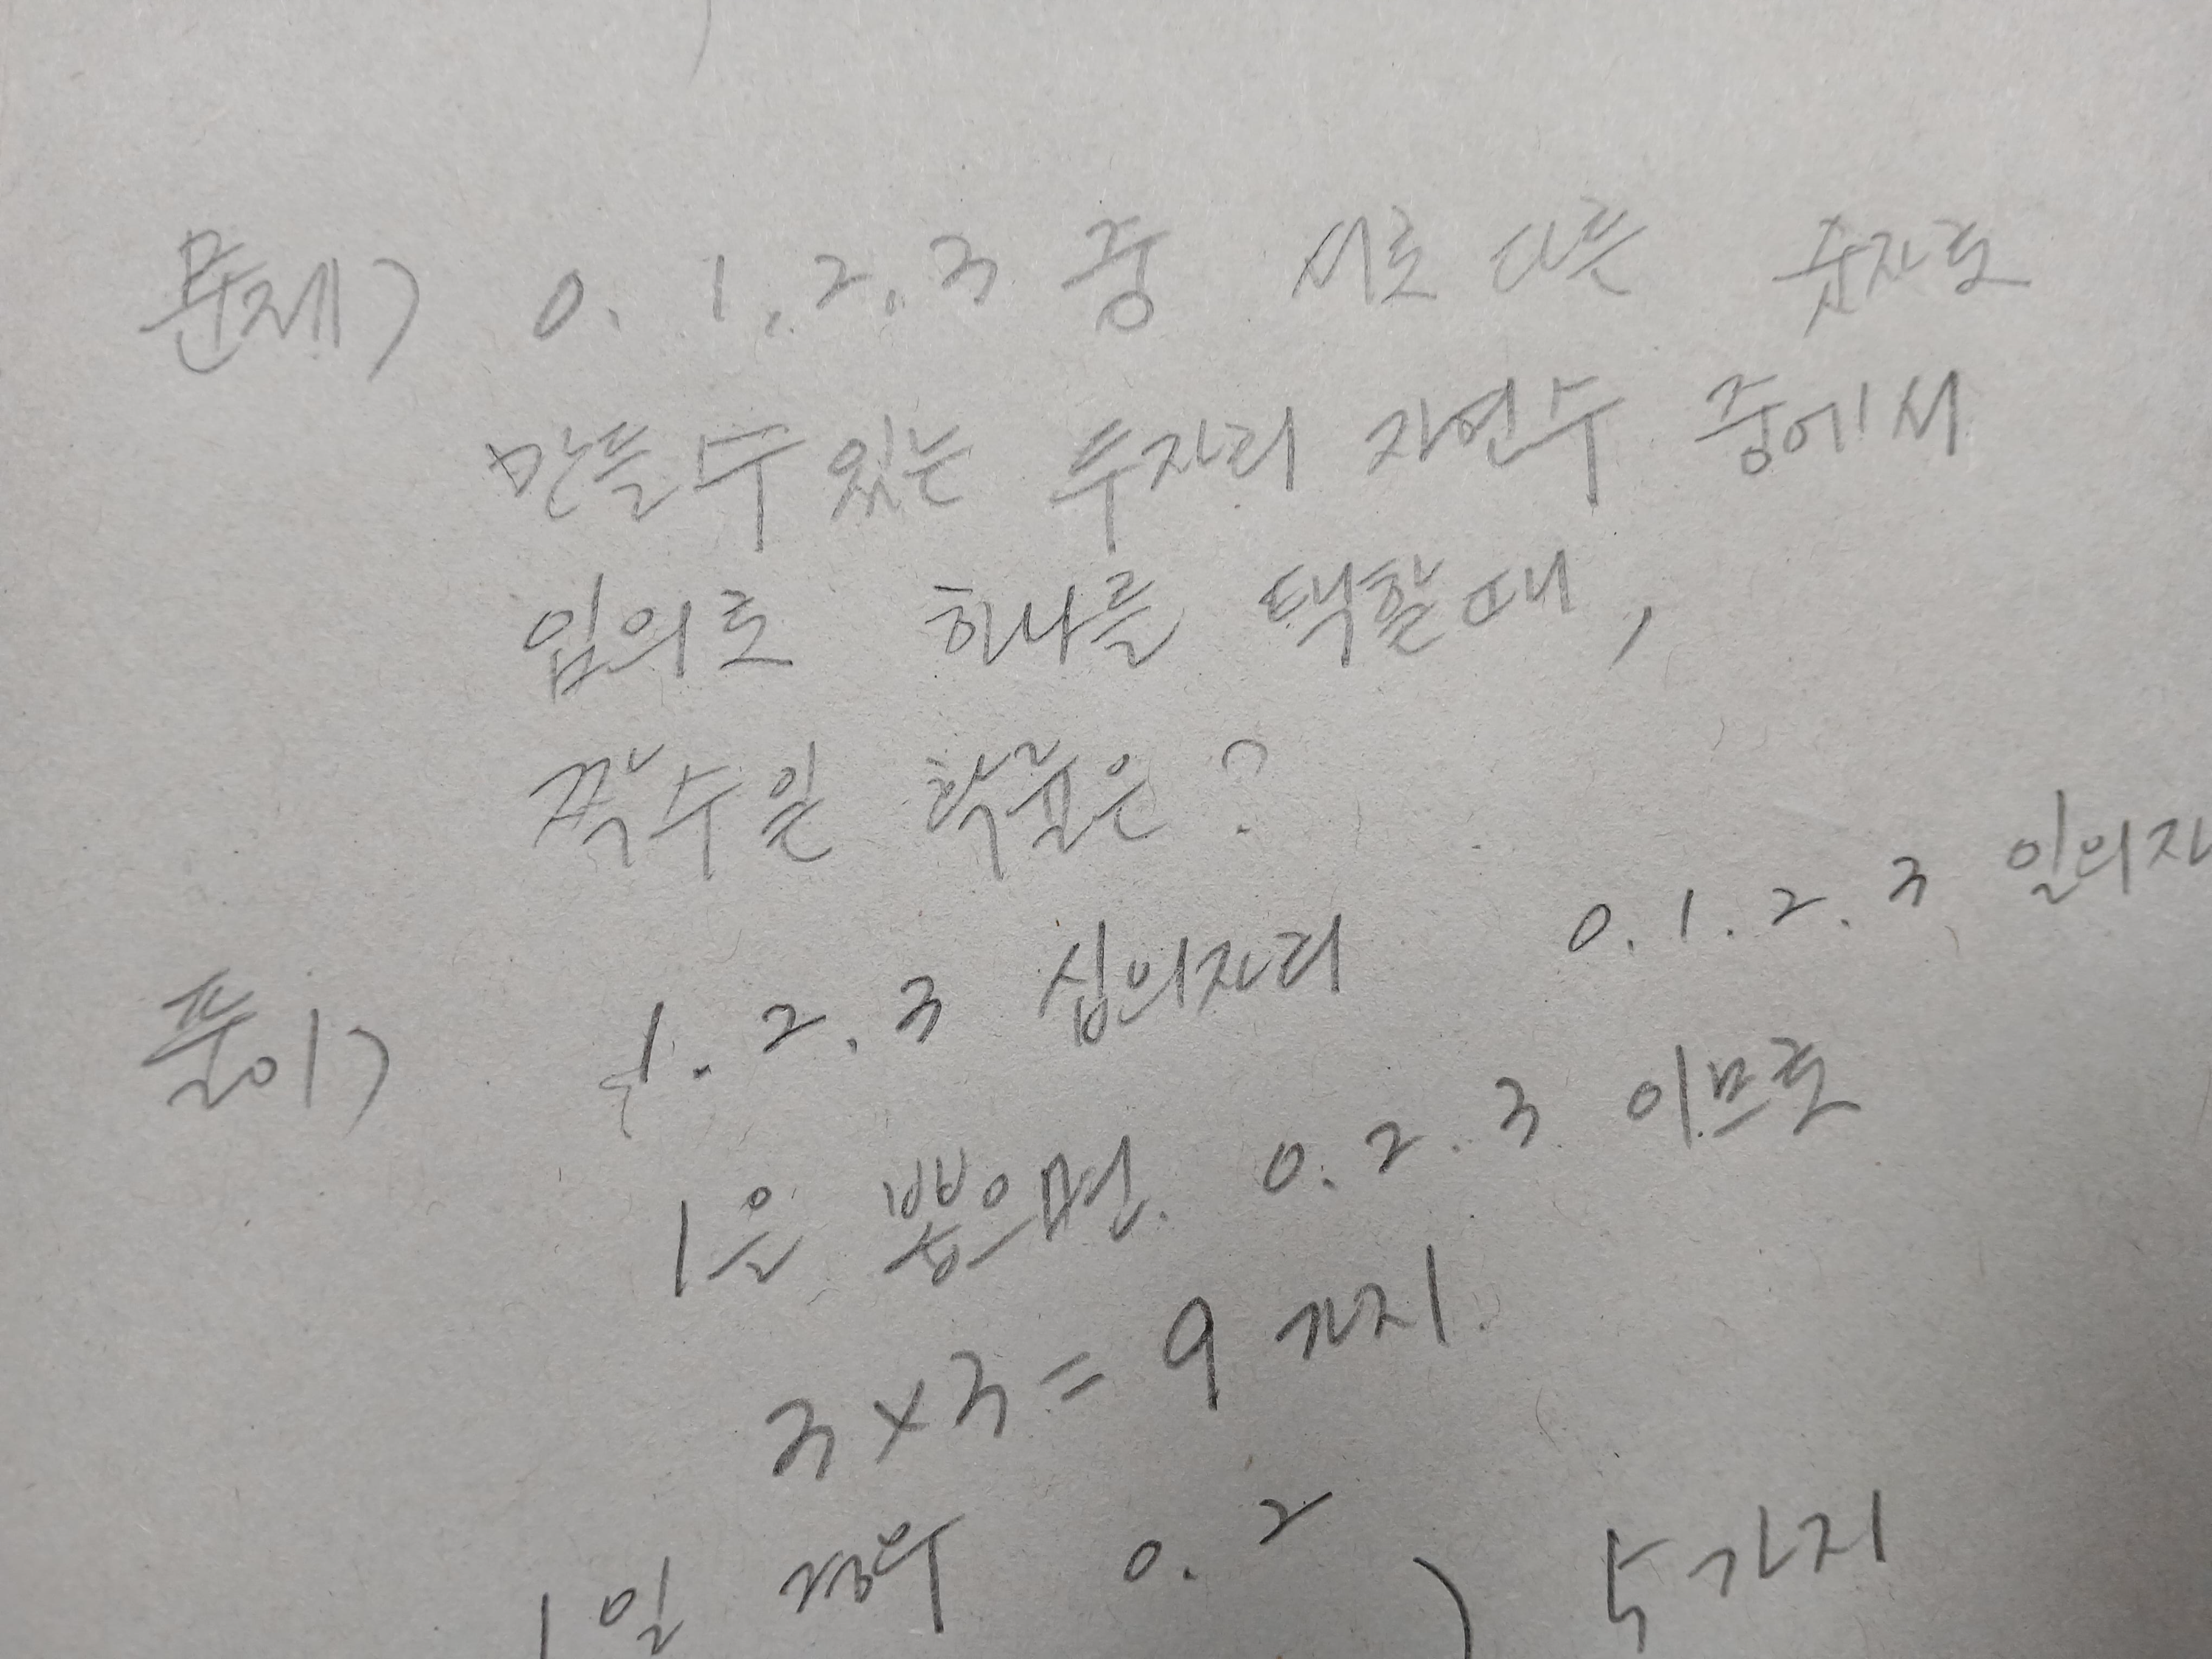 문제> 0. 1, 2, 3 중 서로 다른 숫자로
만들수 있는 두자리 자연수 중에서
임의로 하나를 택할때,
짝수일 확률은?
풀이> 1. 2. 3 십의자리 0. 1. 2. 3 일의자
1을 뽑으면. 0. 2. 3 이므로
3×3 = 9 가지.
1일 경우 0. 2 ) 5가지